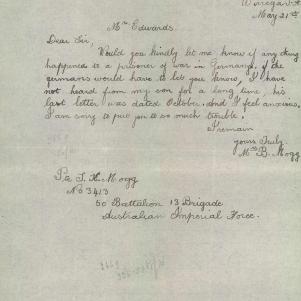 May 21st
Mr Edwards.
Dear Sir,
Would you kindly let me know if any thing
happened to a prisoner of war in Germany, if the
germans would have to let you know, I have
not heard from my son for a long time, his
last letter was dated October. and I feel anxious,
I am sorry to put you to so much trouble.
I remain
yours Truly
Mrs B. Mogg
Pte T. H. Mogg
No 3413
50 Battalion 13 Brigade
Australian Imperial Force.